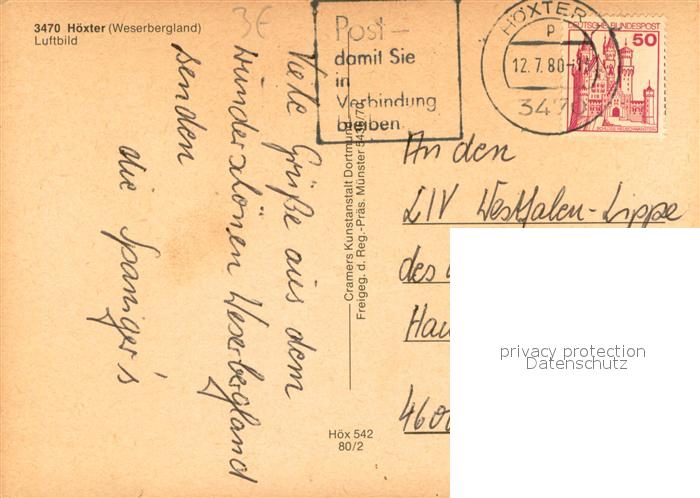 3470 Höxter (Weserbergland)
Luftbild
3€
Post –
damit Sie
in
Verbindung
bleiben
HÖXTER
P
12.7.80-1
3470
DEUTSCHE BUNDESPOST
50
SCHLOSS NEUSCHWANSTEIN
Viele Grüße aus dem
wunderschönen Weserbergland
senden
die Spaniger's
Cramers Kunstanstalt Dortmund
Freigeg. d. Reg.-Präs. Münster 5436/70
Höx 542
80/2
An den
LIV Westfalen-Lippe
des
Hau
460
privacy protection
Datenschutz